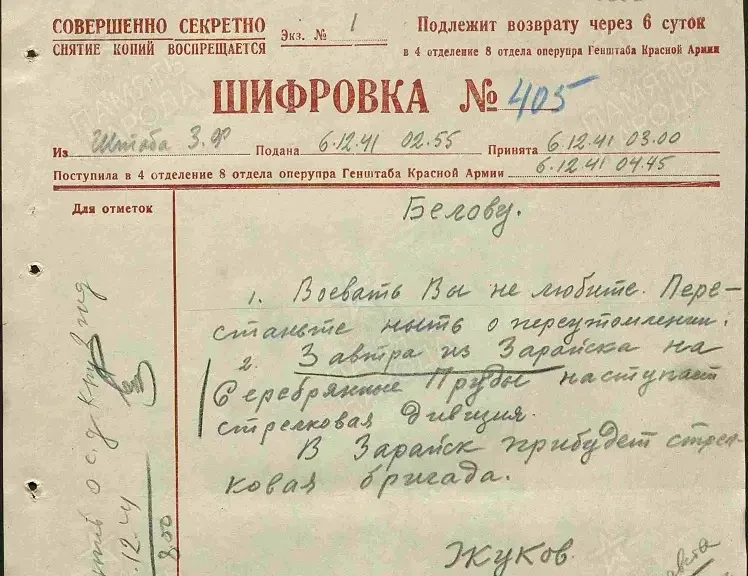 СОВЕРШЕННО СЕКРЕТНО
СНЯТИЕ КОПИЙ ВОСПРЕЩАЕТСЯ
Экз. № 1
Подлежит возврату через 6 суток
в 4 отделение 8 отдела оперупра Генштаба Красной Армии
ШИФРОВКА № 405
Из Штаба З.Ф Подана 6.12.41 02.55 Принята 6.12.41 03.00
Поступила в 4 отделение 8 отдела оперупра Генштаба Красной Армии 6.12.41 04.45
Для отметок
Белову.
1. Воевать Вы не любите. Пере-
станьте ныть о переутомлении.
2. Завтра из Зарайска на
Серебрянные Пруды наступает
стрелковая дивизия.
В Зарайск прибудет стрел-
ковая бригада.
Жуков